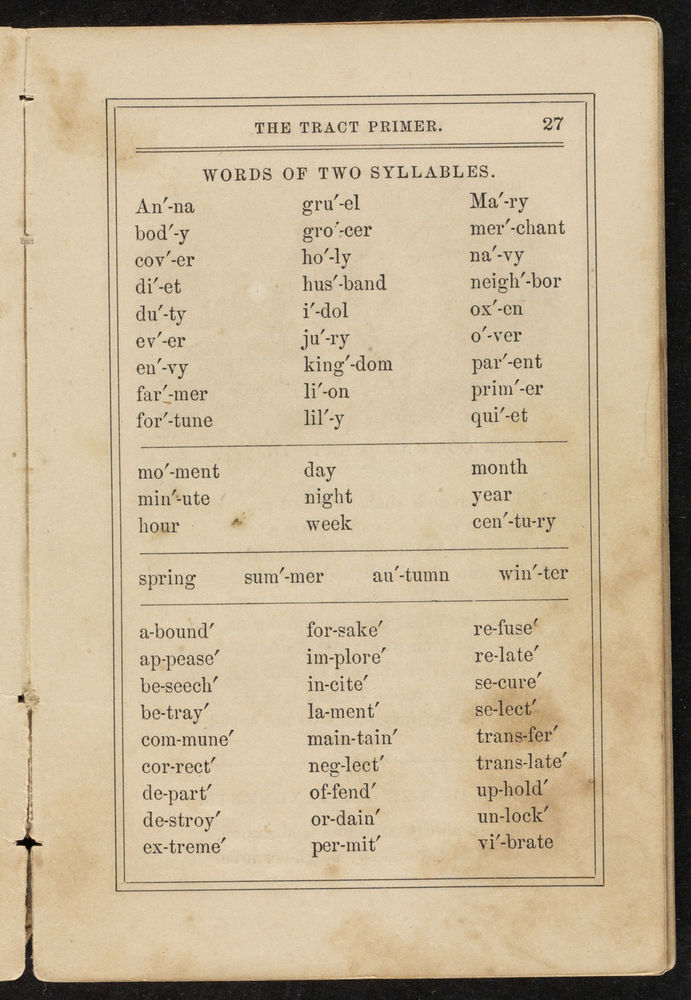 THE TRACT PRIMER. 27
WORDS OF TWO SYLLABLES.
An′-na gru′-el Ma′-ry
bod′-y gro′-cer mer′-chant
cov′-er ho′-ly na′-vy
di′-et hus′-band neigh′-bor
du′-ty i′-dol ox′-en
ev′-er ju′-ry o′-ver
en′-vy king′-dom par′-ent
far′-mer li′-on prim′-er
for′-tune lil′-y qui′-et
mo′-ment day month
min′-ute night year
hour week cen′-tu-ry
spring sum′-mer au′-tumn win′-ter
a-bound′ for-sake′ re-fuse′
ap-pease′ im-plore′ re-late′
be-seech′ in-cite′ se-cure′
be-tray′ la-ment′ se-lect′
com-mune′ main-tain′ trans-fer′
cor-rect′ neg-lect′ trans-late′
de-part′ of-fend′ up-hold′
de-stroy′ or-dain′ un-lock′
ex-treme′ per-mit′ vi′-brate